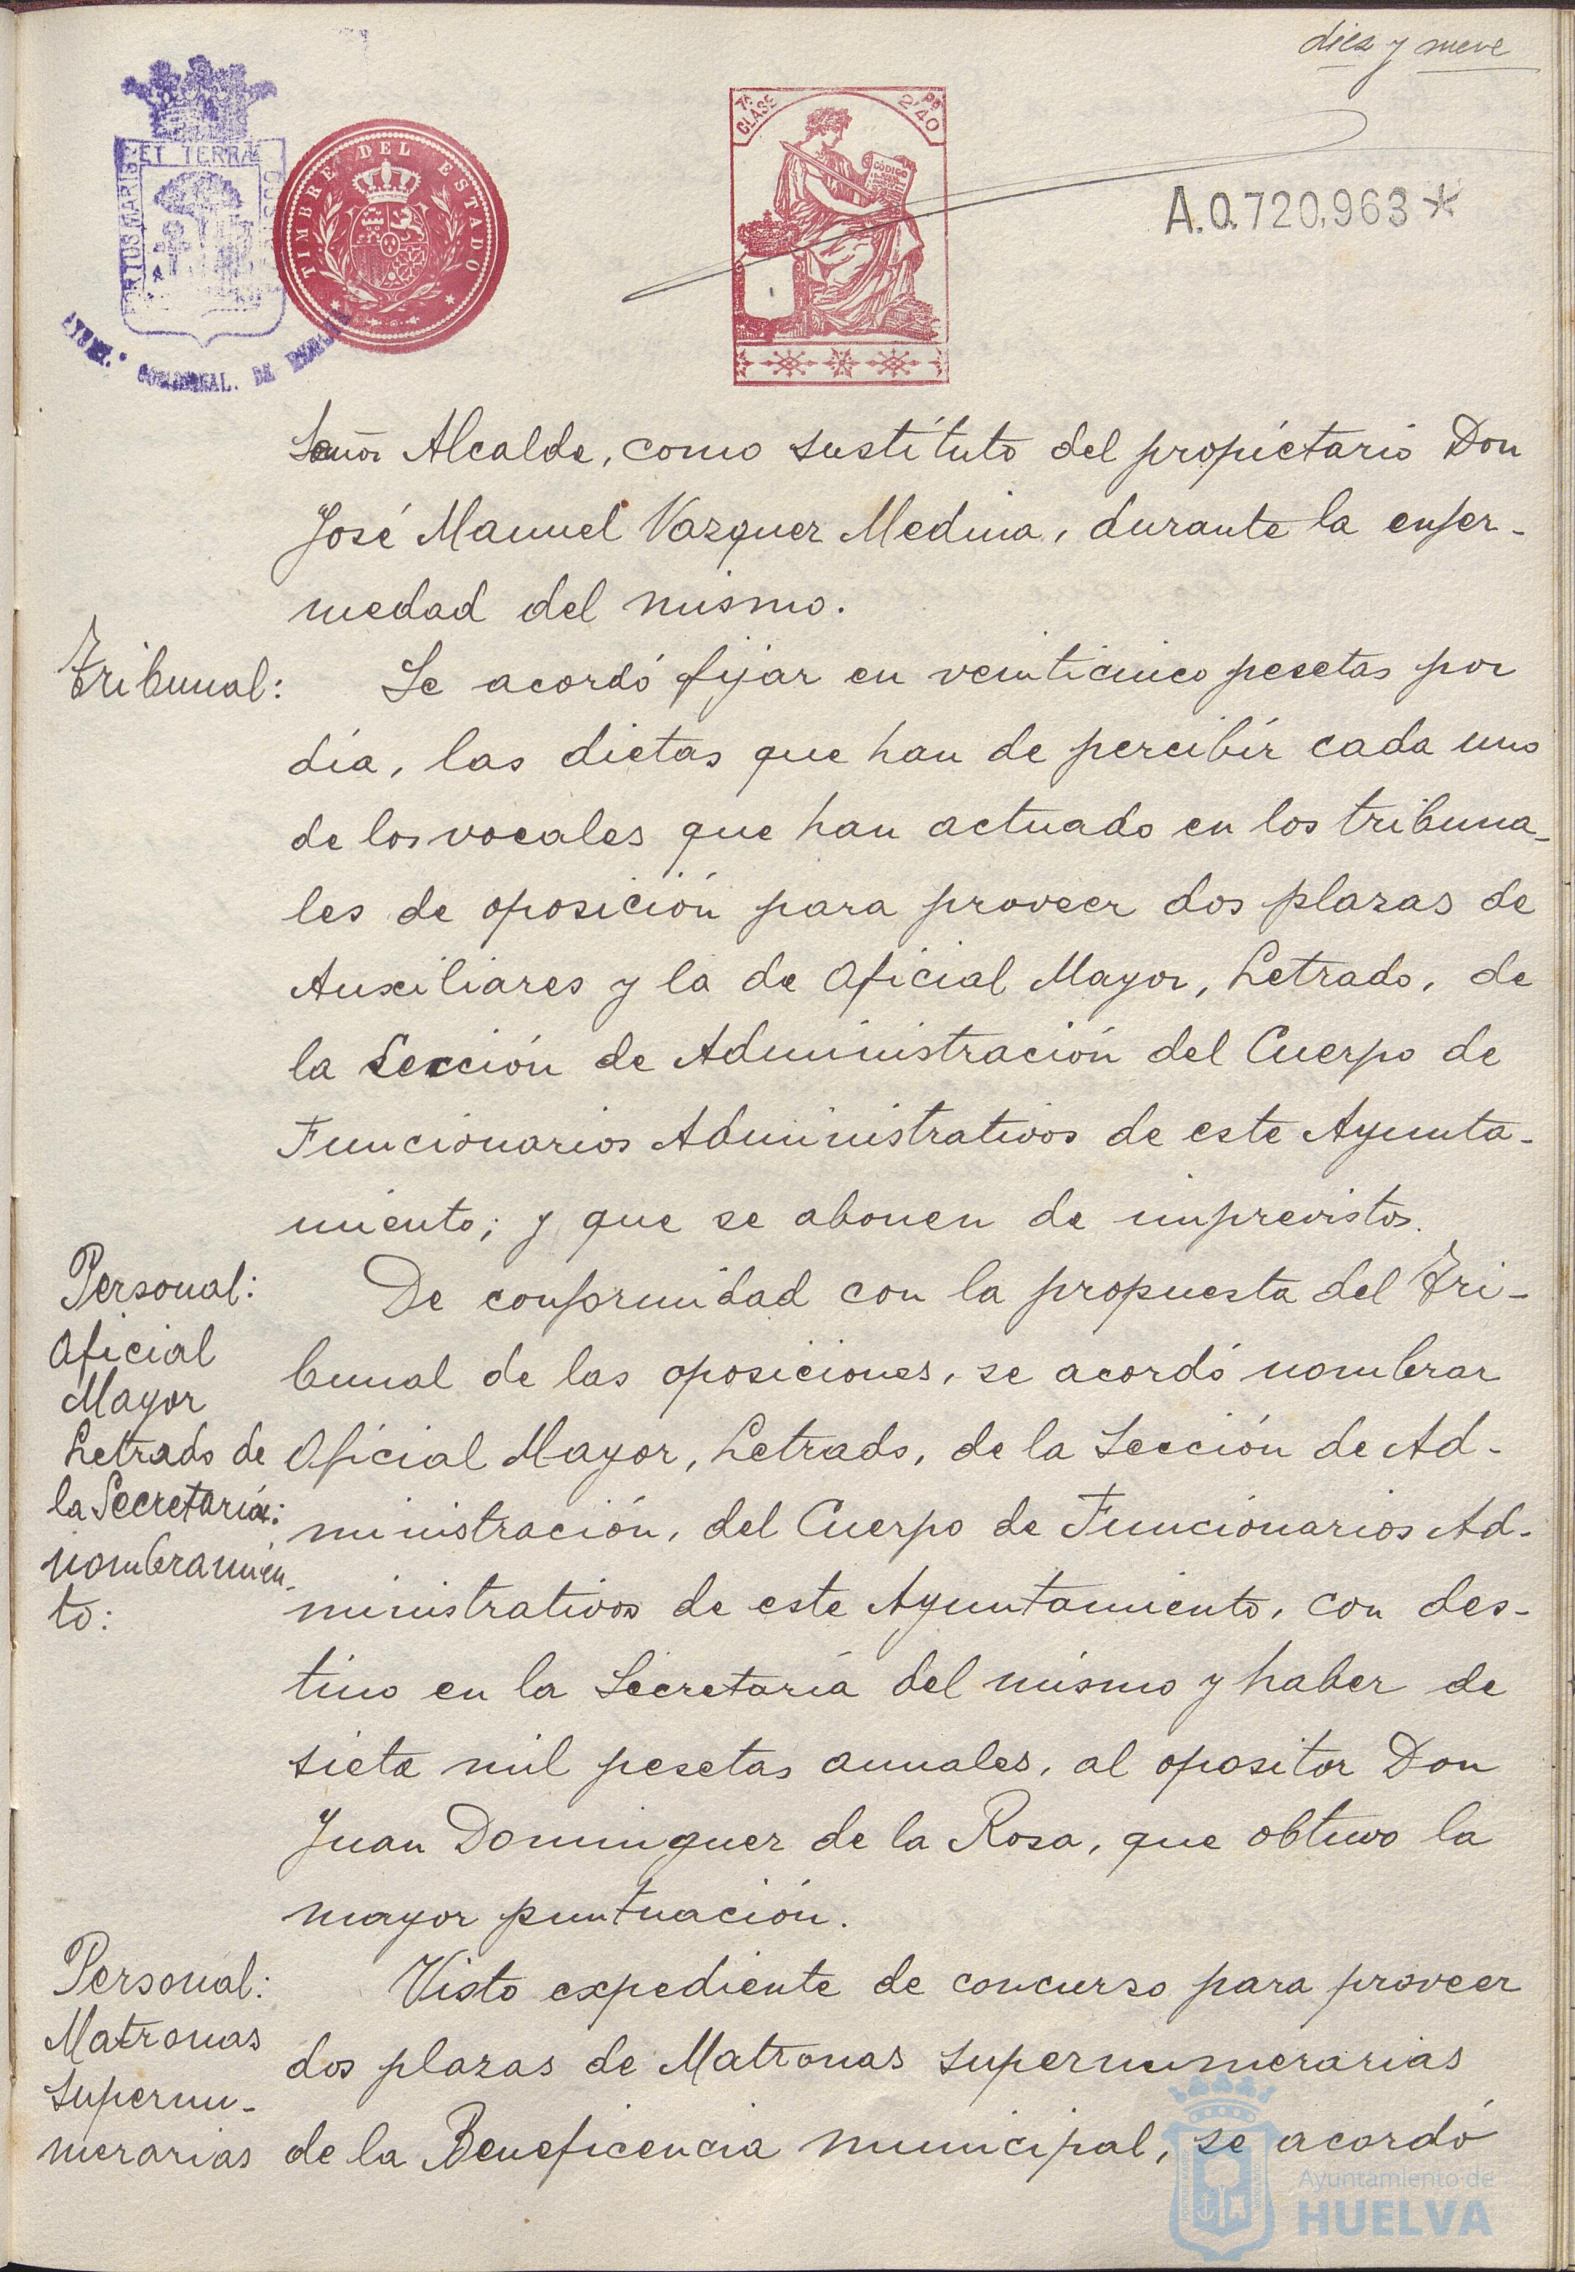 diez y nueve
7ª CLASE
2'40
CÓDIGO
TIMBRE DEL ESTADO
ET TERRA
A.0.720,963*
Señor Alcalde, como sustituto del propietario Don
José Manuel Vazquez Medina, durante la enfer-
medad del mismo.
Tribunal:
Se acordó fijar en veinticinco pesetas por
día, las dietas que han de percibir cada uno
de los vocales que han actuado en los tribuna-
les de oposición para proveer dos plazas de
Auxiliares y la de Oficial Mayor, Letrado, de
la Sección de Administración del Cuerpo de
Funcionarios Administrativos de este Ayunta-
miento; y que se abonen de imprevistos.
Personal:
Oficial
Mayor
Letrado de
la Secretaría:
nombramien-
to:
De conformidad con la propuesta del Tri-
bunal de las oposiciones, se acordó nombrar
Oficial Mayor, Letrado, de la Sección de Ad-
ministración, del Cuerpo de Funcionarios Ad-
ministrativos de este Ayuntamiento, con des-
tino en la Secretaría del mismo y haber de
siete mil pesetas anuales, al opositor Don
Juan Dominguez de la Rosa, que obtuvo la
mayor puntuación.
Personal:
Matronas
supernu-
merarias
Visto expediente de concurso para proveer
dos plazas de Matronas supernumerarias
de la Beneficencia municipal, se acordó
Ayuntamiento de
HUELVA